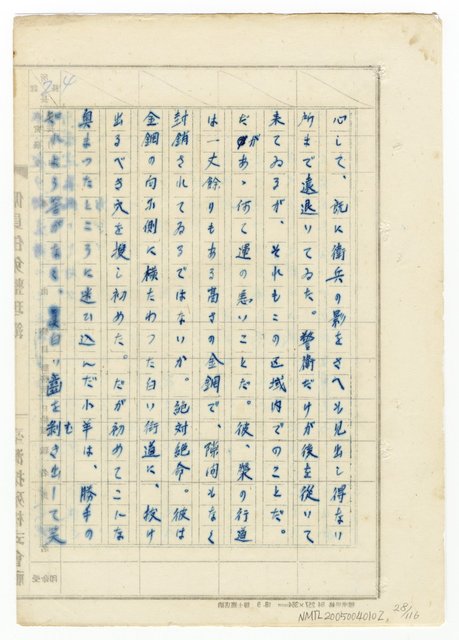 24
心して、既に衛兵の影をさへも見出し得ない
所まで遠退いてゐた。警衛だけが後を従いて
来てゐるが、それもこの区域内でのことだ。
だがあゝ何と運の悪いことだ。彼、榮の行道
は一丈餘りもある高さの金網で、隙間もなく
封鎖されてゐるではないか。絶対絶命。彼は
金網の向ふ側に横たわった白い街道に、抜け
出るべき穴を捜し初めた。だが初めてこにな
奥まったところに迷ひ込んだ小羊は、勝手の
知れよう筈がなく、白い齒を剥き出して笑
28/116
NMTL20050040102